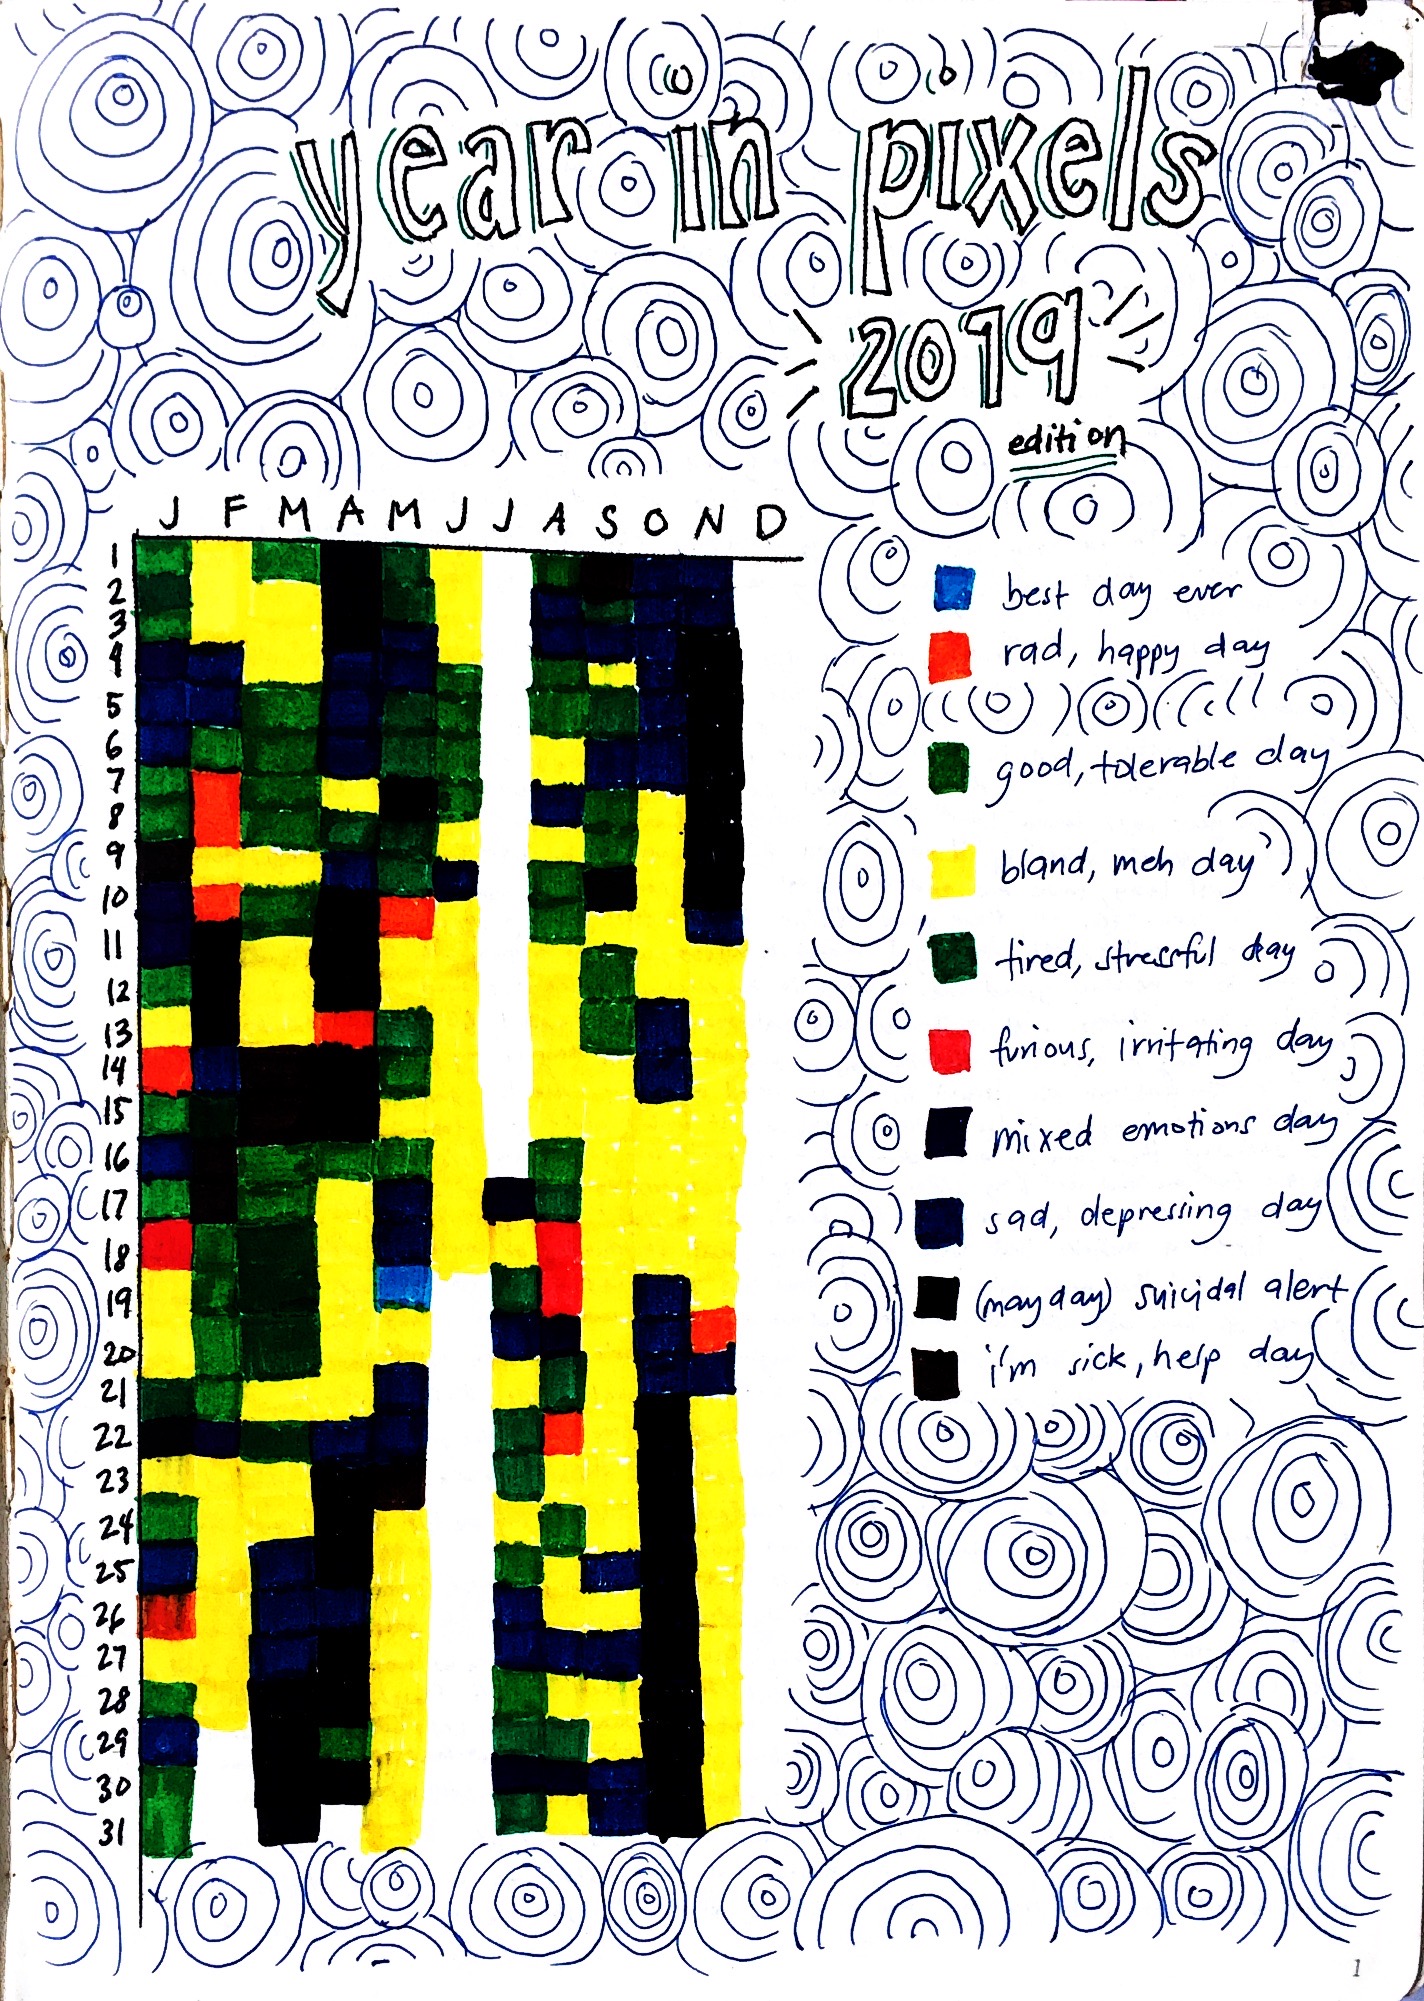 year in pixels
2019
edition
J F M A M J J A S O N D
1
2
3
4
5
6
7
8
9
10
11
12
13
14
15
16
17
18
19
20
21
22
23
24
25
26
27
28
29
30
31
best day ever
rad, happy day
good, tolerable day
bland, meh day
tired, stressful day
furious, irritating day
mixed emotions day
sad, depressing day
(mayday) suicidal alert
i'm sick, help day
1